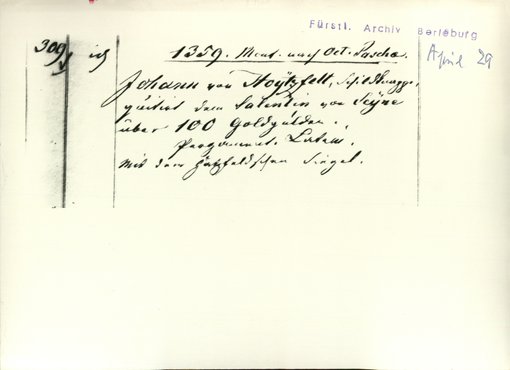 Fürstl. Archiv Berleburg
April 29
309
1359. nach Oct. Pascha.
Johann von Hoytzfelt,
quitirt dem Salentin von Seyne
über 100 Goldgulden.
Pergament. Latein.
Mit dem Hatzfeldschen Siegel.